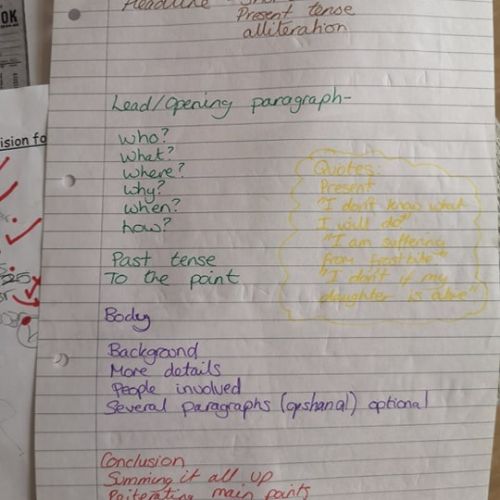 OK
ision fo
Headline
Present tense
alliteration
Lead/Opening paragraph-
Who?
What?
where?
why?
when?
how?
Past tense
To the point
Quotes:
Present
"I don't know what
I will do"
"I am suffering
from frostbite"
"I don't if my
daughter is alive"
Body
Background
More details
People involved
Several paragraphs (opshanal) optional
Conclusion
Summing it all up
Reiterating main points